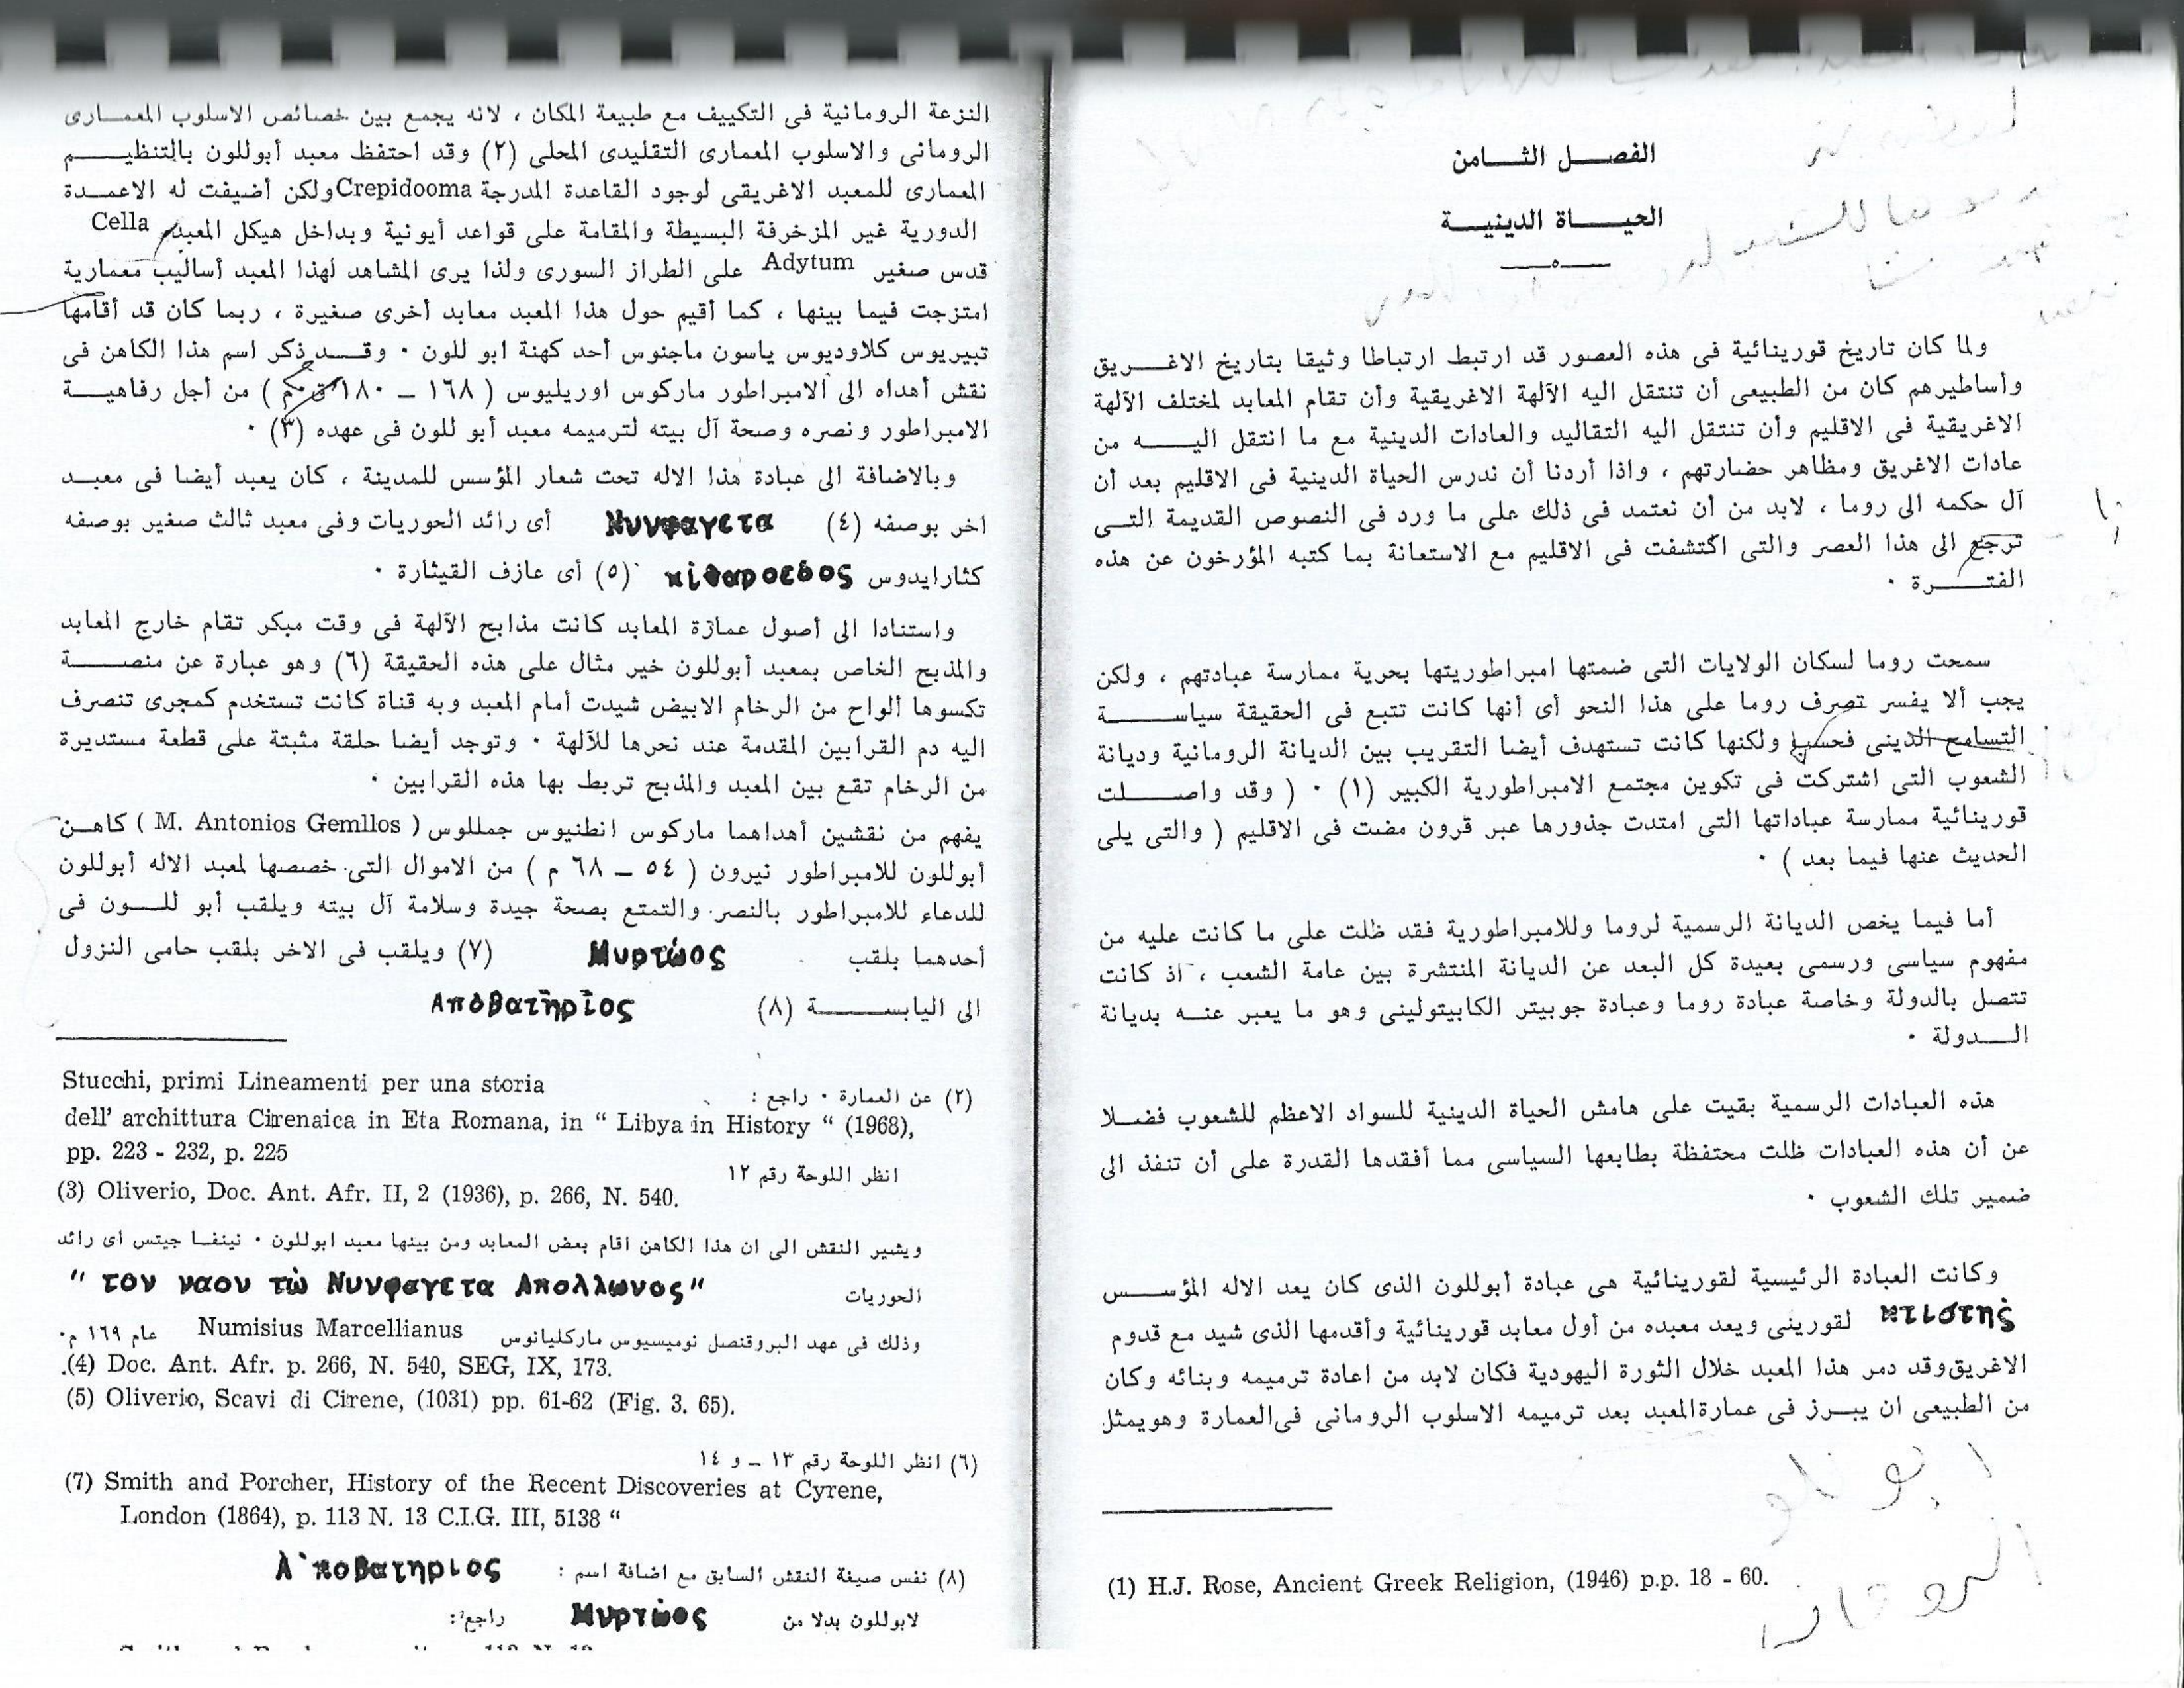 الفصل الثامن
الحياة الدينية
ولما كان تاريخ قورينائية فى هذه العصور قد ارتبط ارتباطا وثيقا بتاريخ الاغريق
وأساطيرهم كان من الطبيعى أن تنتقل اليه الآلهة الاغريقية وأن تقام المعابد لمختلف الآلهة
الاغريقية فى الاقليم وأن تنتقل اليه التقاليد والعادات الدينية مع ما انتقل اليه من
عادات الاغريق ومظاهر حضارتهم ، واذا أردنا أن ندرس الحياة الدينية فى الاقليم بعد أن
آل حكمه الى روما ، لابد من أن نعتمد فى ذلك على ما ورد فى النصوص القديمة التى
ترجع الى هذا العصر والتى اكتشفت فى الاقليم مع الاستعانة بما كتبه المؤرخون عن هذه
الفترة .
سمحت روما لسكان الولايات التى ضمتها امبراطوريتها بحرية ممارسة عبادتهم ، ولكن
يجب ألا يفسر تصرف روما على هذا النحو أى أنها كانت تتبع فى الحقيقة سياسة
التسامح الدينى فحسب ولكنها كانت تستهدف أيضا التقريب بين الديانة الرومانية وديانة
الشعوب التى اشتركت فى تكوين مجتمع الامبراطورية الكبير (١) . ( وقد واصلت
قورينائية ممارسة عباداتها التى امتدت جذورها عبر قرون مضت فى الاقليم ( والتى يلى
الحديث عنها فيما بعد ) .
أما فيما يخص الديانة الرسمية لروما وللامبراطورية فقد ظلت على ما كانت عليه من
مفهوم سياسى ورسمى بعيدة كل البعد عن الديانة المنتشرة بين عامة الشعب ، اذ كانت
تتصل بالدولة وخاصة عبادة روما وعبادة جوبيتر الكابيتولينى وهو ما يعبر عنه بديانة
الدولة .
هذه العبادات الرسمية بقيت على هامش الحياة الدينية للسواد الاعظم للشعوب فضلا
عن أن هذه العبادات ظلت محتفظة بطابعها السياسى مما أفقدها القدرة على أن تنفذ الى
ضمير تلك الشعوب .
وكانت العبادة الرئيسية لقورينائية هى عبادة أبوللون الذى كان يعد الاله المؤسس
κτιστης لقورينى ويعد معبده من أول معابد قورينائية وأقدمها الذى شيد مع قدوم
الاغريق وقد دمر هذا المعبد خلال الثورة اليهودية فكان لابد من اعادة ترميمه وبنائه وكان
من الطبيعى ان يبرز فى عمارة المعبد بعد ترميمه الاسلوب الرومانى فى العمارة وهو يمثل
(1) H.J. Rose, Ancient Greek Religion, (1946) p.p. 18 - 60.
النزعة الرومانية فى التكييف مع طبيعة المكان ، لانه يجمع بين خصائص الاسلوب المعمارى
الرومانى والاسلوب المعمارى التقليدى المحلى (٢) وقد احتفظ معبد أبوللون بالتنظيم
المعمارى للمعبد الاغريقى لوجود القاعدة المدرجة Crepidooma ولكن أضيفت له الاعمدة
الدورية غير المزخرفة البسيطة والمقامة على قواعد أيونية وبداخل هيكل المعبد Cella
قدس صغير Adytum على الطراز السورى ولذا يرى المشاهد لهذا المعبد أساليب معمارية
امتزجت فيما بينها ، كما أقيم حول هذا المعبد معابد أخرى صغيرة ، ربما كان قد أقامها
تيبريوس كلاوديوس ياسون ماجنوس أحد كهنة ابو للون . وقد ذكر اسم هذا الكاهن فى
نقش أهداه الى الامبراطور ماركوس اوريليوس ( ١٦٨ – ١٨٠ ق.م ) من أجل رفاهية
الامبراطور ونصره وصحة آل بيته لترميمه معبد أبو للون فى عهده (٣) .
وبالاضافة الى عبادة هذا الاله تحت شعار المؤسس للمدينة ، كان يعبد أيضا فى معبد
اخر بوصفه (٤) Νυνφαγετα أى رائد الحوريات وفى معبد ثالث صغير بوصفه
كثارايدوس κιθαροεδος (٥) أى عازف القيثارة .
واستنادا الى أصول عمارة المعابد كانت مذابح الآلهة فى وقت مبكر تقام خارج المعابد
والمذبح الخاص بمعبد أبوللون خير مثال على هذه الحقيقة (٦) وهو عبارة عن منصة
تكسوها ألواح من الرخام الابيض شيدت أمام المعبد وبه قناة كانت تستخدم كمجرى تنصرف
اليه دم القرابين المقدمة عند نحرها للآلهة . وتوجد أيضا حلقة مثبتة على قطعة مستديرة
من الرخام تقع بين المعبد والمذبح تربط بها هذه القرابين .
يفهم من نقشين أهداهما ماركوس انطنيوس جمللوس ( M. Antonios Gemllos ) كاهن
أبوللون للامبراطور نيرون ( ٥٤ – ٦٨ م ) من الاموال التى خصصها لمعبد الاله أبوللون
للدعاء للامبراطور بالنصر والتمتع بصحة جيدة وسلامة آل بيته ويلقب أبو للون فى
أحدهما بلقب Μυρτώος (٧) ويلقب فى الاخر بلقب حامى النزول
الى اليابسة (٨) Αποβατηριος
(٢) عن العمارة . راجع : Stucchi, primi Lineamenti per una storia
dell' archittura Cirenaica in Eta Romana, in “ Libya in History “ (1968),
pp. 223 - 232, p. 225
انظر اللوحة رقم ١٢
(3) Oliverio, Doc. Ant. Afr. II, 2 (1936), p. 266, N. 540.
ويشير النقش الى ان هذا الكاهن اقام بعض المعابد ومن بينها معبد ابوللون . نينفا جيتس اى رائد
الحوريات " τον ναον τώ Νυνφαγετα Απολλωνος"
وذلك فى عهد البروقنصل نوميسيوس ماركليانوس Numisius Marcellianus عام ١٦٩ م.
.(4) Doc. Ant. Afr. p. 266, N. 540, SEG, IX, 173.
(5) Oliverio, Scavi di Cirene, (1031) pp. 61-62 (Fig. 3. 65).
(٦) انظر اللوحة رقم ١٣ – و ١٤
(7) Smith and Porcher, History of the Recent Discoveries at Cyrene,
London (1864), p. 113 N. 13 C.I.G. III, 5138 “
(٨) نفس صيغة النقش السابق مع اضافة اسم : Α'ποβατηριος
لابوللون بدلا من Μυρτώος راجع: